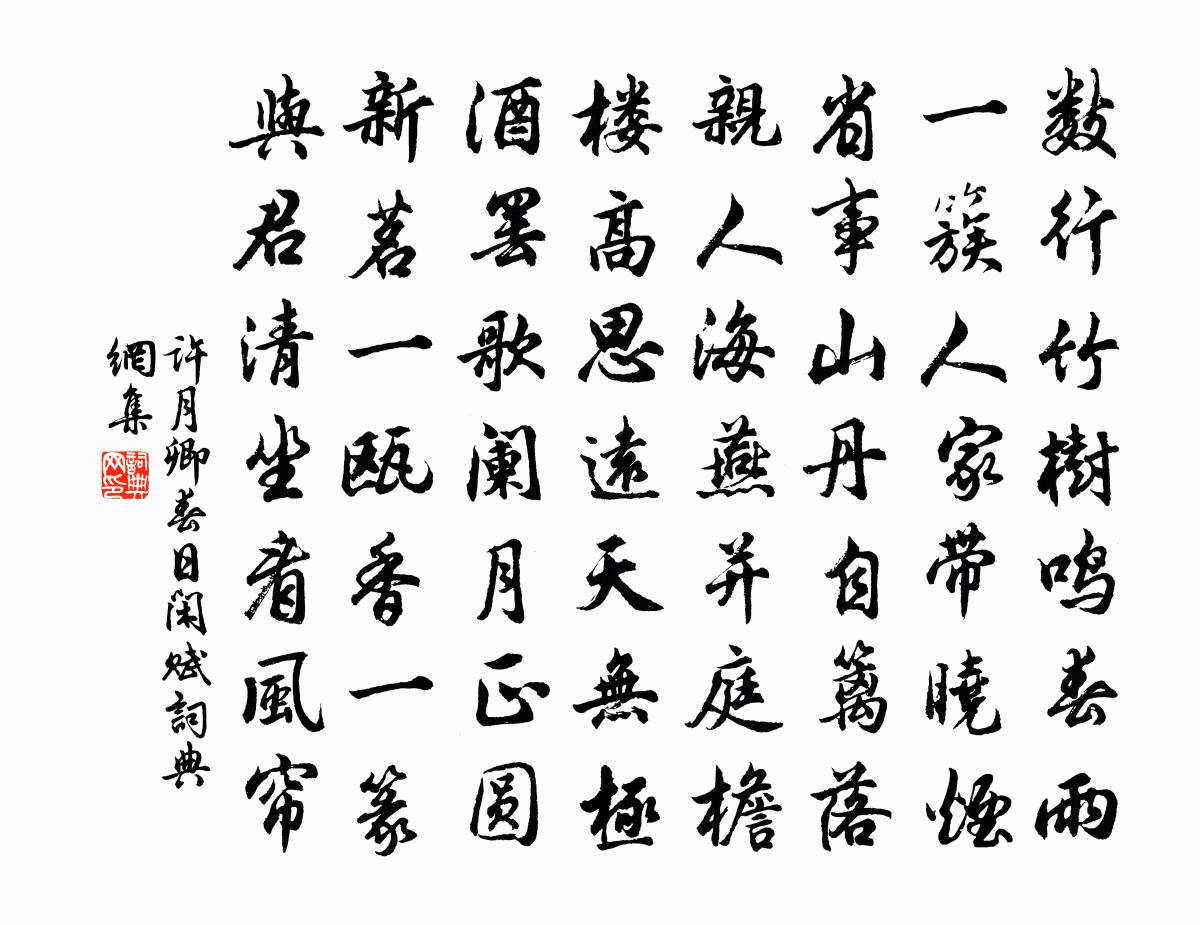 数行竹樹鸣春雨
一簇人家带曉煙
省事山丹自篱落
親人海燕并庭檐
楼高思遠天無極
酒罢歌阑月正圆
新茗一瓯香一篆
與君清坐看風帘
许月卿春日闲赋詞典
網集
詞典网印